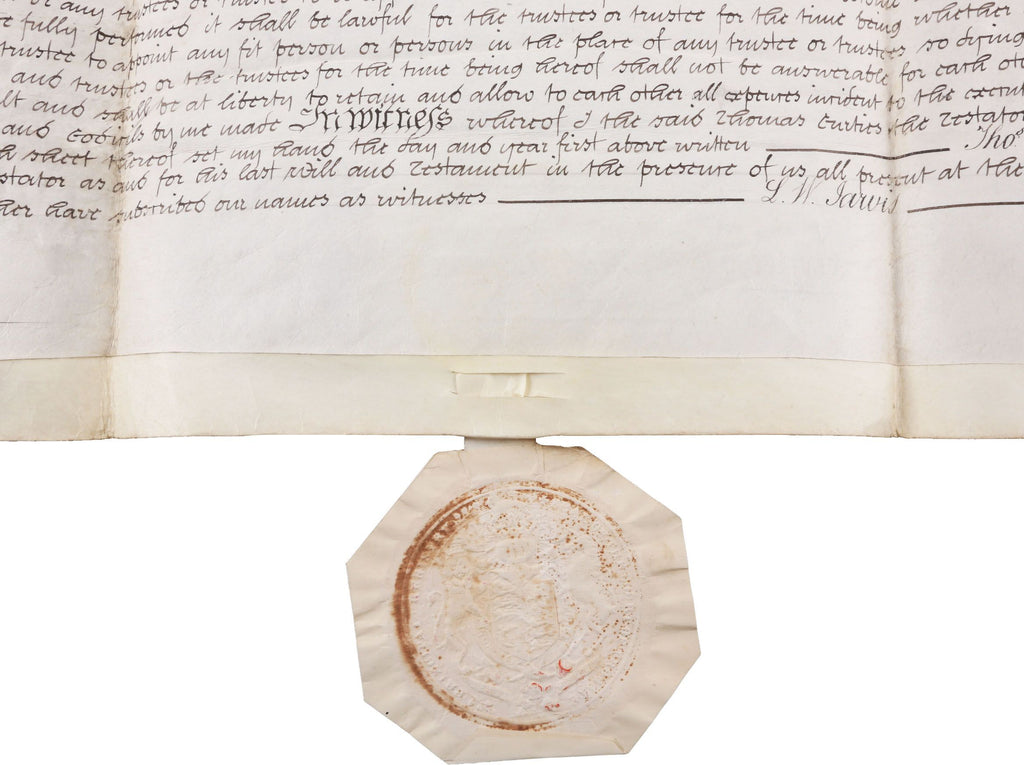 or any trustees or trustee to be
e fully performed it shall be lawful for the trustees or trustee for the time being whether
trustee to appoint any fit person or persons in the place of any trustee or trustees so dying
and trustees or the trustees for the time being hereof shall not be answerable for each ot
lt and shall be at liberty to retain and allow to each other all expences incident to the execut
and Codicils by me made In Witness whereof I the said Thomas Curties the Testator
h sheet thereof set my hand the day and year first above written Thos
stator as and for his last Will and Testament in the presence of us all present at the
her have subscribed our names as witnesses L. W. Jarvis